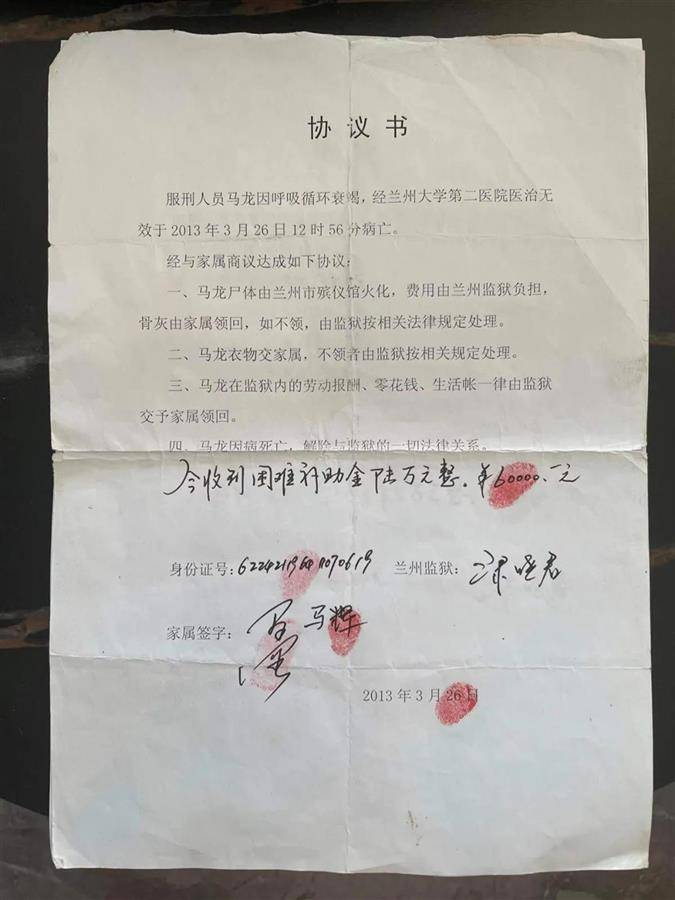 协议书
服刑人员马龙因呼吸循环衰竭，经兰州大学第二医院医治无
效于2013年3月26日12时56分病亡。
经与家属商议达成如下协议：
一、马龙尸体由兰州市殡仪馆火化，费用由兰州监狱负担，
骨灰由家属领回，如不领，由监狱按相关法律规定处理。
二、马龙衣物交家属，不领者由监狱按相关规定处理。
三、马龙在监狱内的劳动报酬、零花钱、生活帐一律由监狱
交予家属领回。
四、马龙因病死亡，解除与监狱的一切法律关系。
今收到困难补助金陆万元整。¥60000.元
身份证号: 兰州监狱:
家属签字: 马辉
2013年3月26日